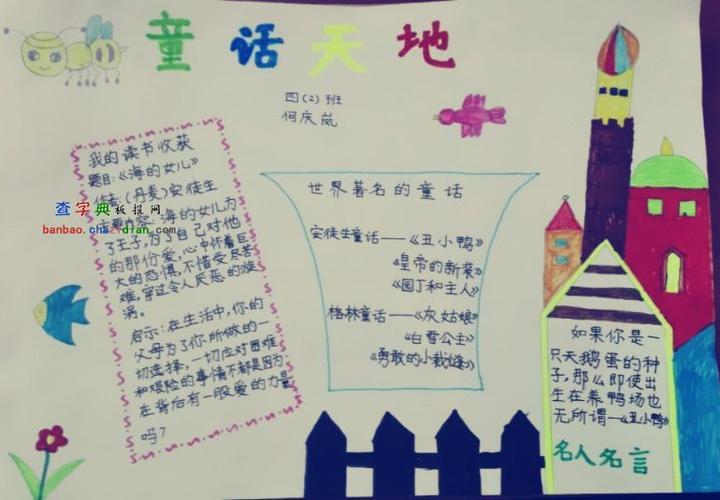 童话天地
四(2)班
何庆岚
我的读书收获
题目:《海的女儿》
作者:(丹麦)安徒生
主要内容:海的女儿为
了王子,为了自己对他
的那份爱,心中怀着巨
大的恐惧,不惜受尽苦
难,穿过令人厌恶的漩
涡。
启示:在生活中,你的
父母为了你所做的一
切选择,一切应对困难
和艰险的事情不都是因为
在背后有一股爱的力量
吗?
查字典板报网
banbao.chazidian.com
世界著名的童话
安徒生童话——《丑小鸭》
《皇帝的新装》
《园丁和主人》
格林童话——《灰姑娘》
《白雪公主》
《勇敢的小裁缝》
如果你是一
只天鹅蛋的种
子,那么即使出
生在养鸭场也
无所谓—《丑小鸭》
名人名言